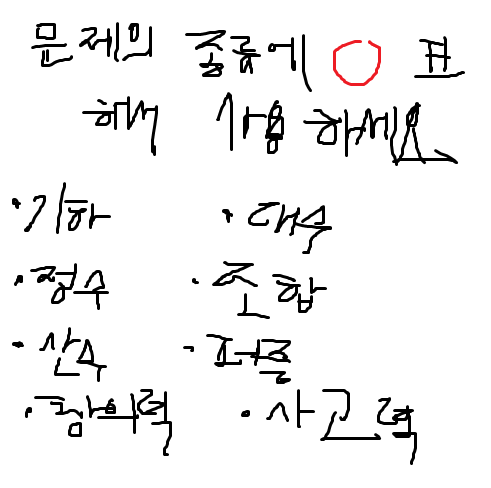 문제의 종류에 ○ 표
해서 사용하세요
·기하 ·대수
·정수 ·조합
·산수 ·퍼즐
·창의력 ·사고력